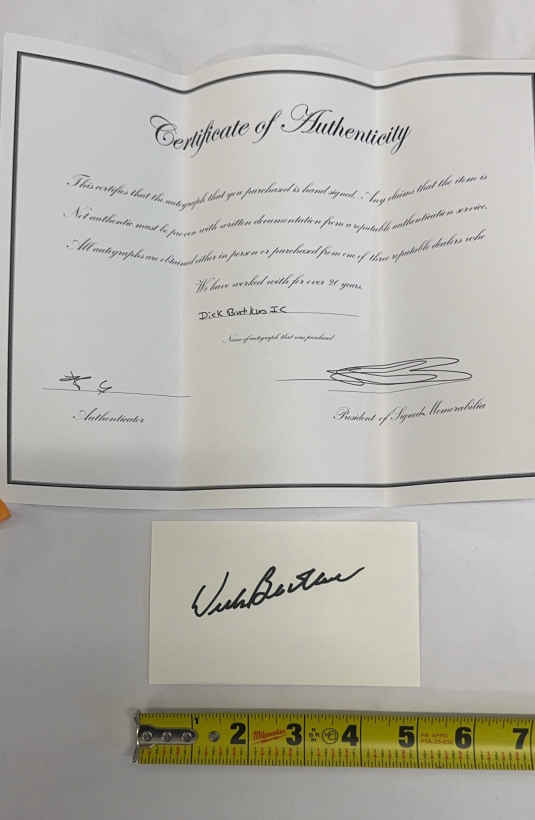 Certificate of Authenticity
This certifies that the autograph that you purchased is hand signed. Any claims that the item is
Not authentic must be proven with written documentation from a reputable authentication service.
All autographs are obtained either in person or purchased from one of three reputable dealers who
We have worked with for over 20 years.
Dick Butkus IC
Name of autograph that was purchased
Authenticator
President of Signed Memorabilia
1 2 Milwaukee 3 4 5 6 7